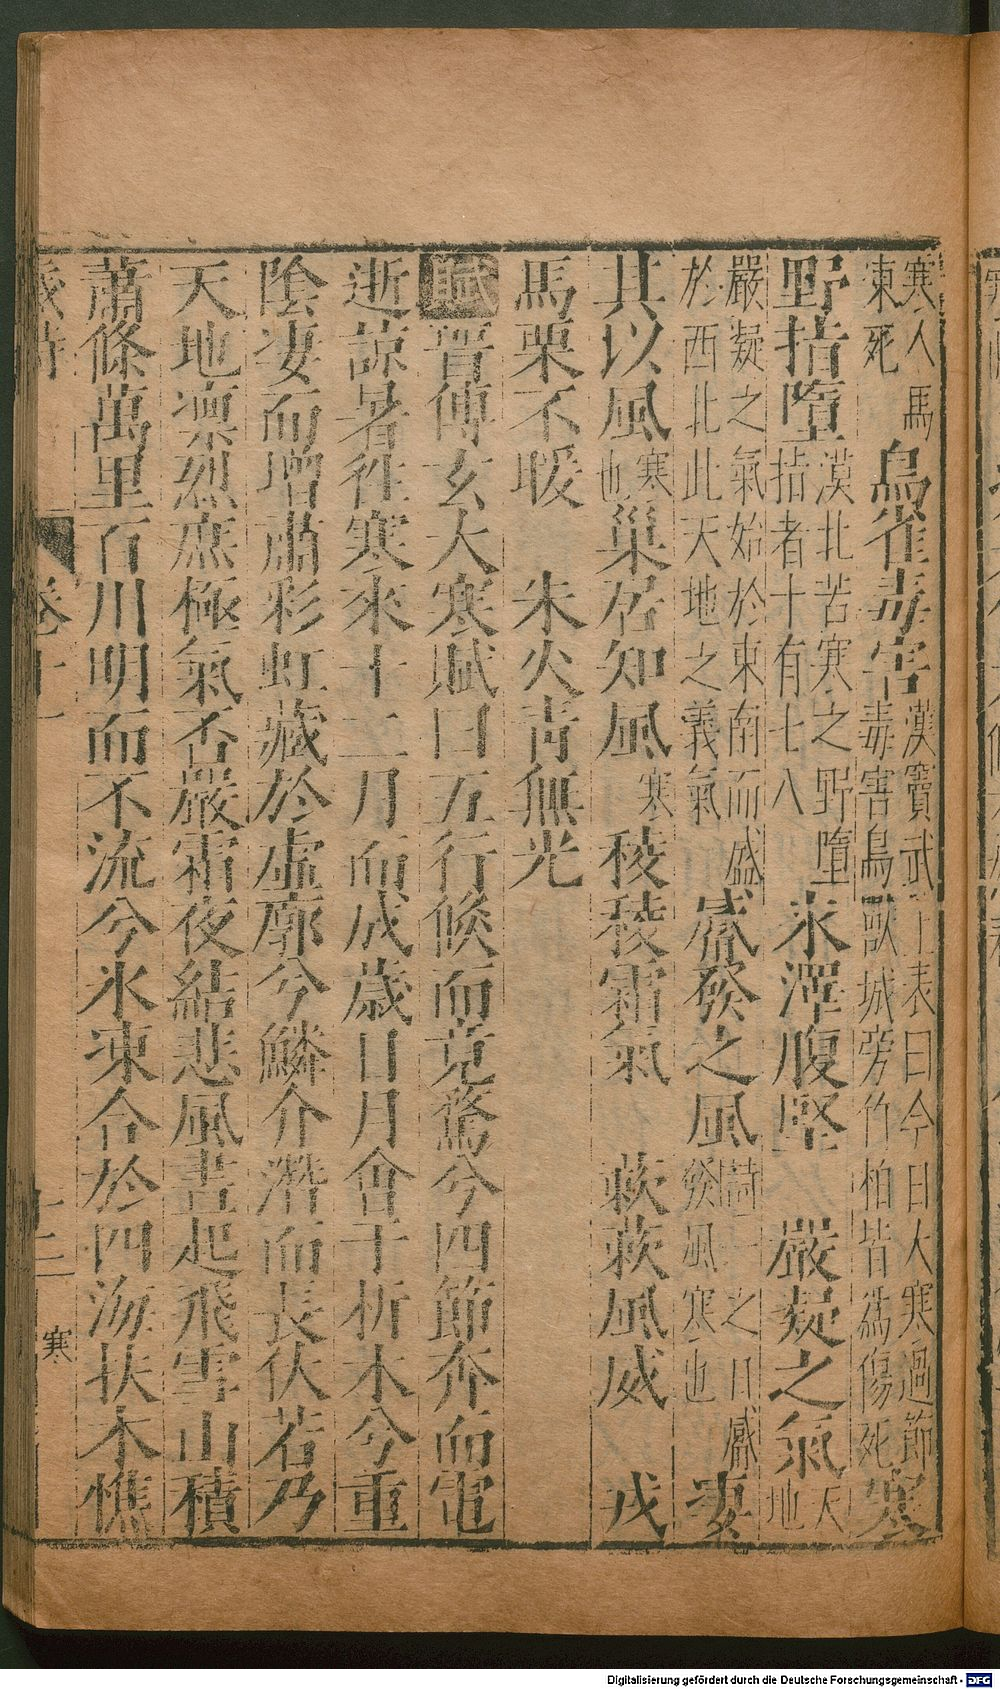 寒人馬凍死 烏雀毒害 漢竇武上表曰今日大寒過節毒害鳥獸城旁竹柏皆為傷死 寒
野指墮 漠北苦寒之野墮指者十有七八 水澤腹堅 嚴凝之氣 天地
嚴凝之氣始於東南而盛於西北此天地之義氣 觱發之風 詩一之日觱發風寒也 淒
其以風 寒也 巢居知風 寒 稜稜霜氣 蔌蔌風威 戎
馬栗不暖 朱火青無光
賦 晉傅玄大寒賦曰五行倏而竟騖兮四節奔而電
逝諒暑徃寒來十二月而成歲日月會于析木兮重
陰凄而增肅彩虹藏於虛廓兮鱗介潛而長伏若乃
天地凜烈庶極氣否嚴霜夜結悲風晝起飛雪山積
蕭條萬里百川明而不流兮氷凍合於四海扶木憔
歲時 卷十一 十二 寒
Digitalisierung gefördert durch die Deutsche Forschungsgemeinschaft - DFG